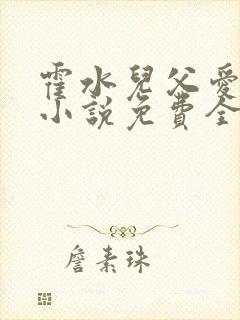 霍水兒父愛
小說免費全
詹素珠